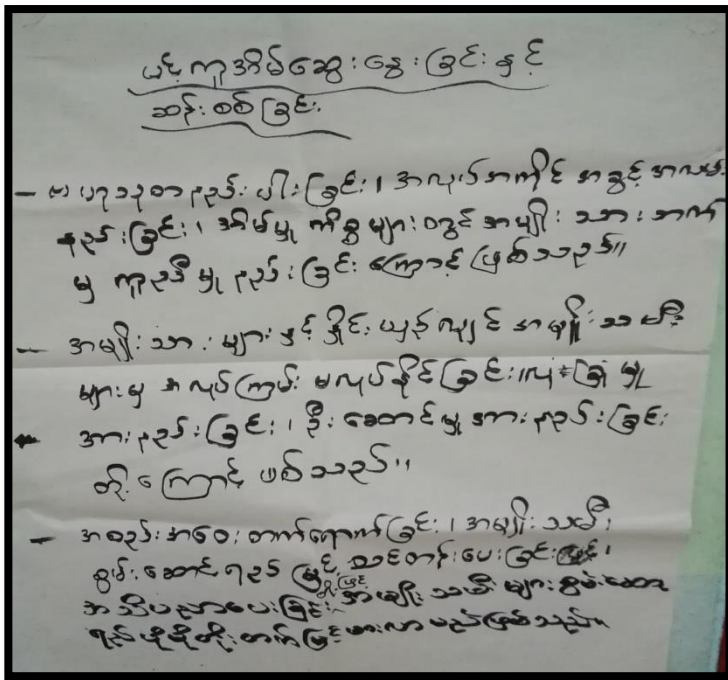 ပင့်ကူအိမ်ဆွေးနွေးခြင်းနှင့်
ဆန်းစစ်ခြင်း
- ဗဟုသုတနည်းပါးခြင်း၊ အလုပ်အကိုင် အခွင့်အလမ်း
နည်းခြင်း၊ အိမ်မှုကိစ္စများတွင် အမျိုးသားဘက်
မှ ကူညီမှုနည်းခြင်းကြောင့် ဖြစ်သည်။
- အမျိုးသားများနှင့် နှိုင်းယှဉ်လျှင် အမျိုးသမီး
များမှ အလုပ်ကြမ်း မလုပ်နိုင်ခြင်း၊ လုံခြုံမှု
အားနည်းခြင်း၊ ဦးဆောင်မှုအားနည်းခြင်း
တို့ကြောင့် ဖစ်သည်။
- အစည်းအဝေးတက်ရောက်ခြင်း၊ အမျိုးသမီး
စွမ်းဆောင်ရည်မြှင့် သင်တန်းပေးခြင်း
အသိပညာပေးခြင်းတို့ဖြင့် အမျိုးသမီးများစွမ်းဆောင
ရည်ပိုမိုတိုးတက်မြင့်မားလာမည်ဖြစ်သည်။